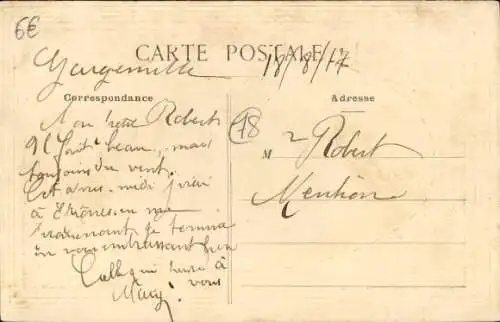 6€
CARTE POSTALE
Gargenville 18/8/17
Correspondance
Adresse
78
Mon petit Robert
Il fait beau, mais
toujours du vent.
Cet après-midi j'irai
à Épônes en me
promenant je termine
en vous embrassant bien
Celle qui pense à
vous
Mary
M r Robert
Mention